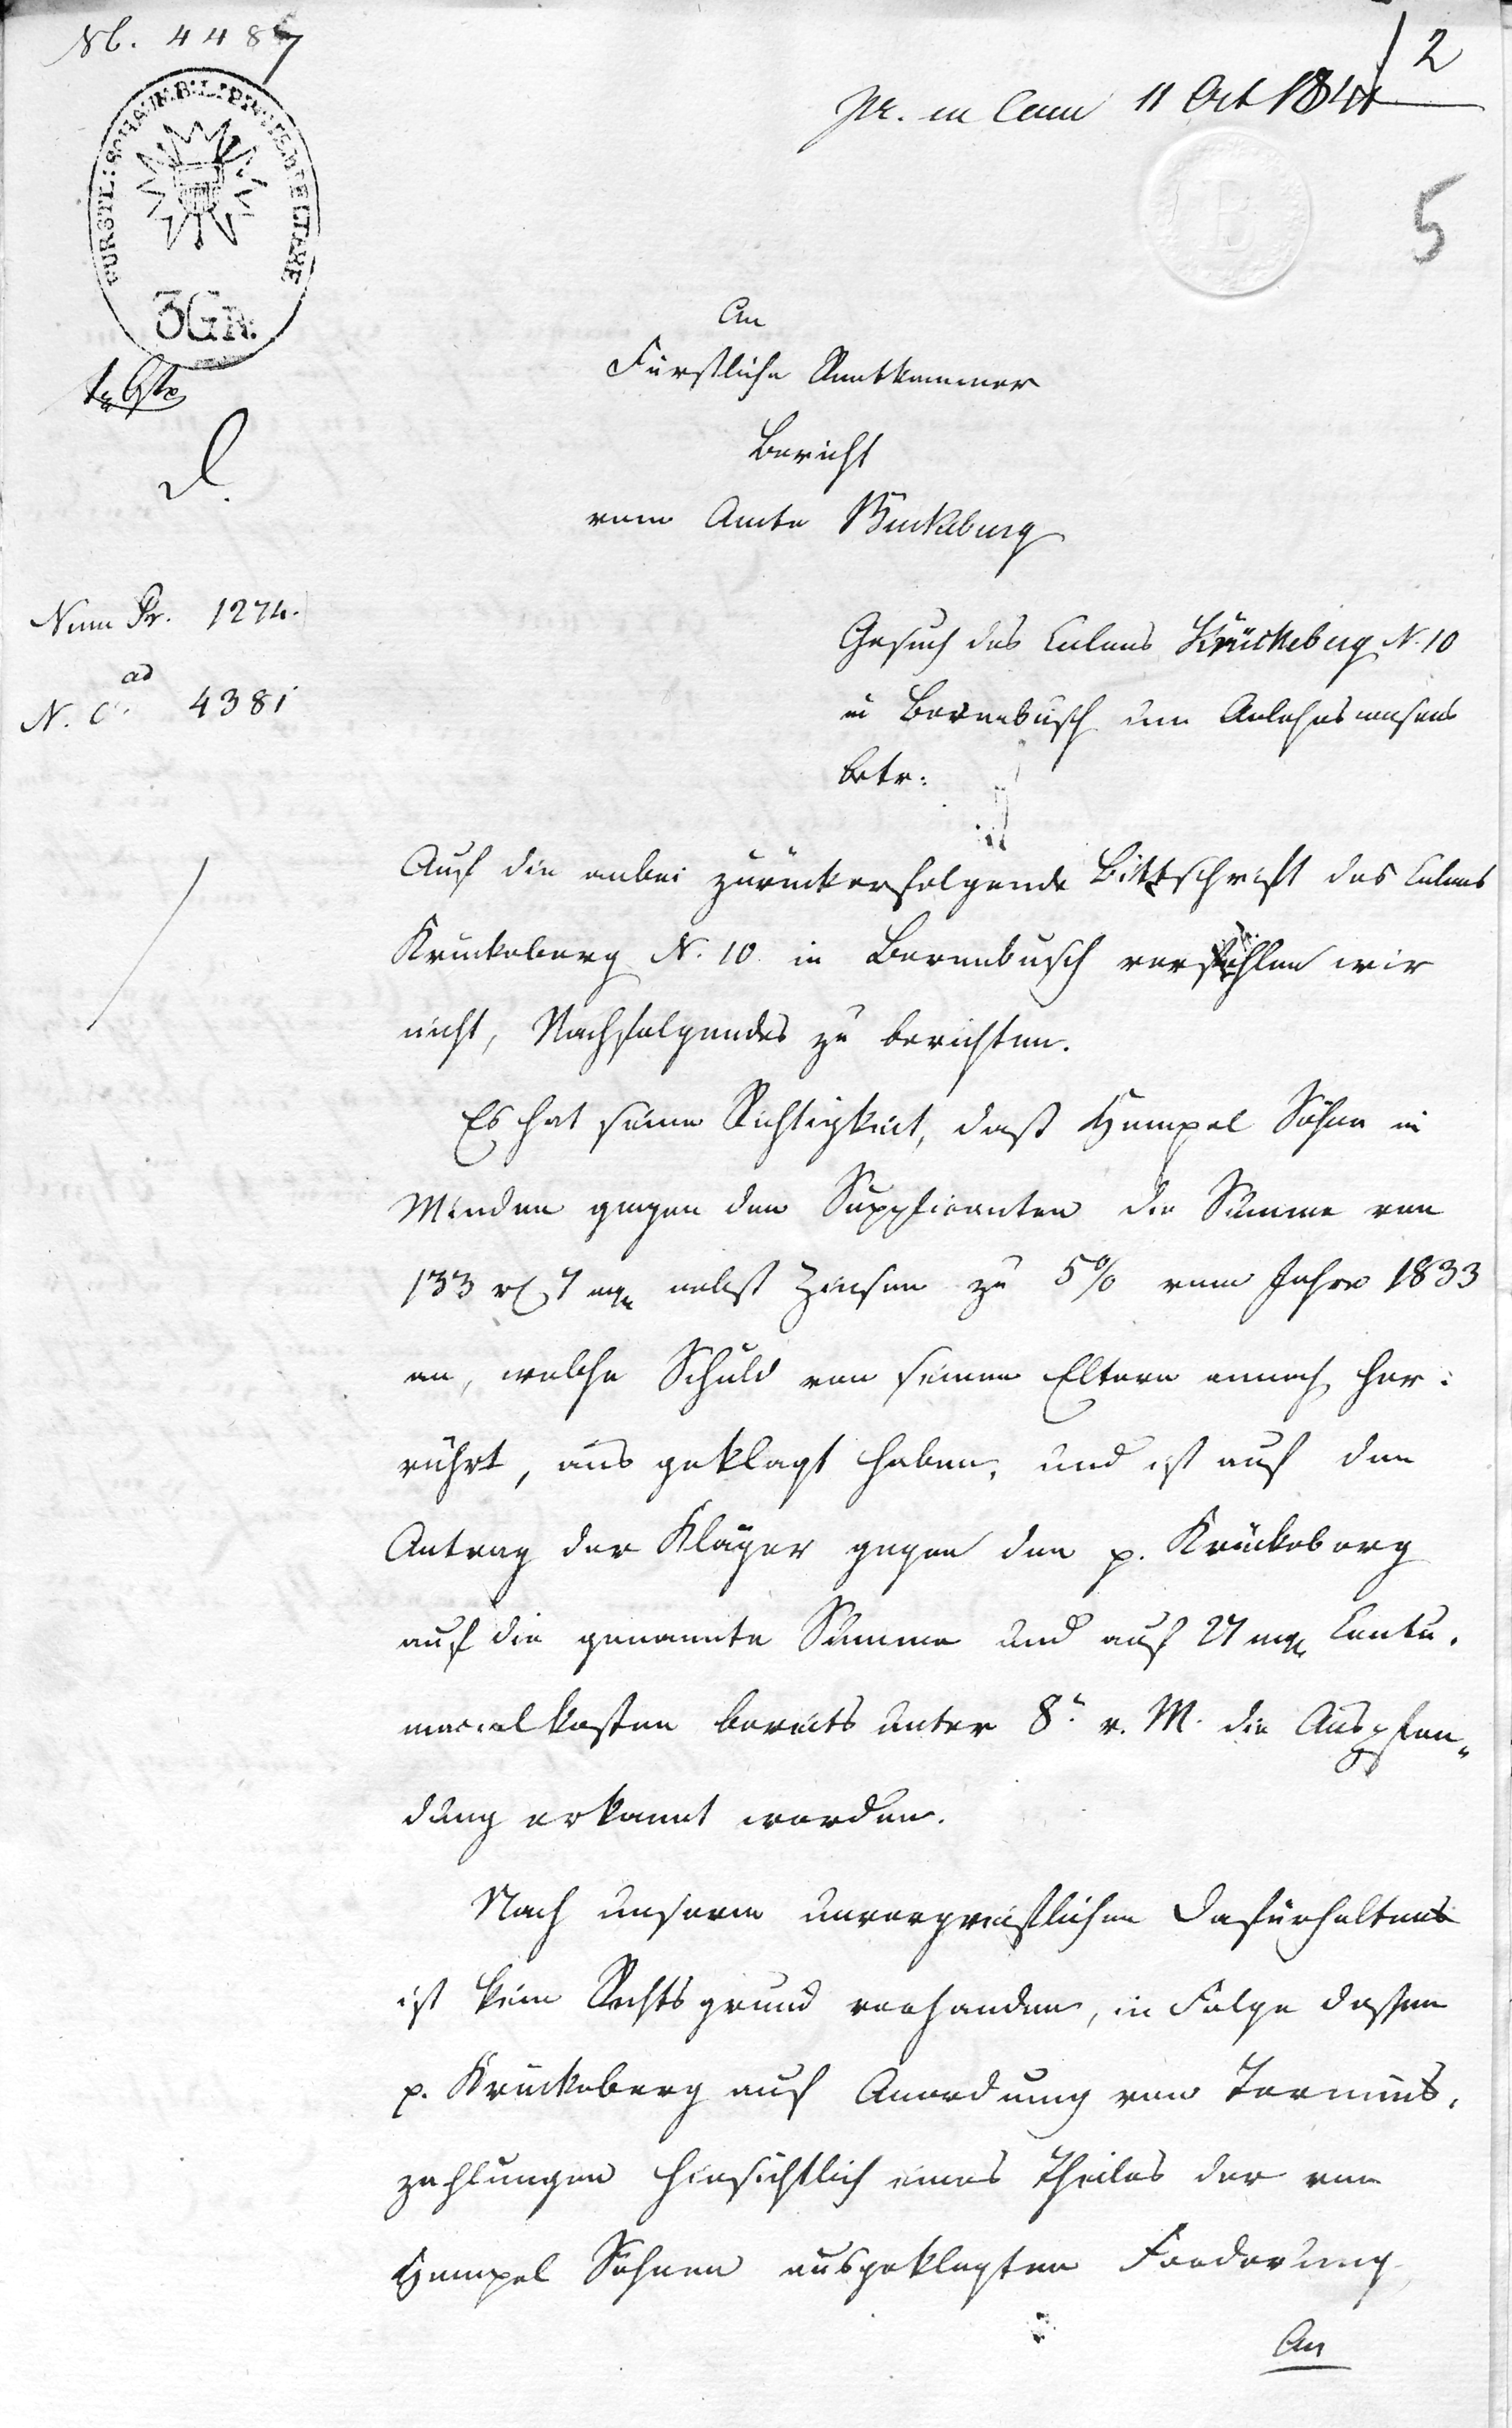 Nb. 4487
pr. in Cam 11 Oct 1841
2
5
FÜRSTL: SCHAUMB: LIPP:
3 GR.
An
Fürstliche Rentkammer
Bericht
vom Amte Bückeburg
Num Pr. 1274.
ad
N. C. 4381
Gesuch des Colons Krückeberg N. 10
in Berenbusch um Anlehnsconsens
betr:
Auf die anbei zurückerfolgende Bittschrift des Colons
Krückeberg N. 10 in Berenbusch verfehlen wir
nicht, Nachfolgendes zu berichten.
Es hat seine Richtigkeit, daß Hempel Söhne in
Minden gegen den Supplicanten die Summe von
133 rt 7 mg nebst Zinsen zu 5% vom Jahre 1833
an, welche Schuld von seinen Eltern annoch her:
rührt, aus geklagt haben, und ist auf den
Antrag der Kläger gegen den p. Krückeberg
auf die genannte Summe und auf 27 mg Contu.
macialkosten bereits unter 8. v. M. die Auspfän„
dung erkannt worden.
Nach unserm unvorgreiflichen Dafürhalten
ist kein Rechtsgrund vorhanden, in Folge dessen
p. Krückeberg auf Anordnung von Termins.
zahlungen hinsichtlich eines Theiles der von
Hempel Söhnen ausgeklagten Forderung
An